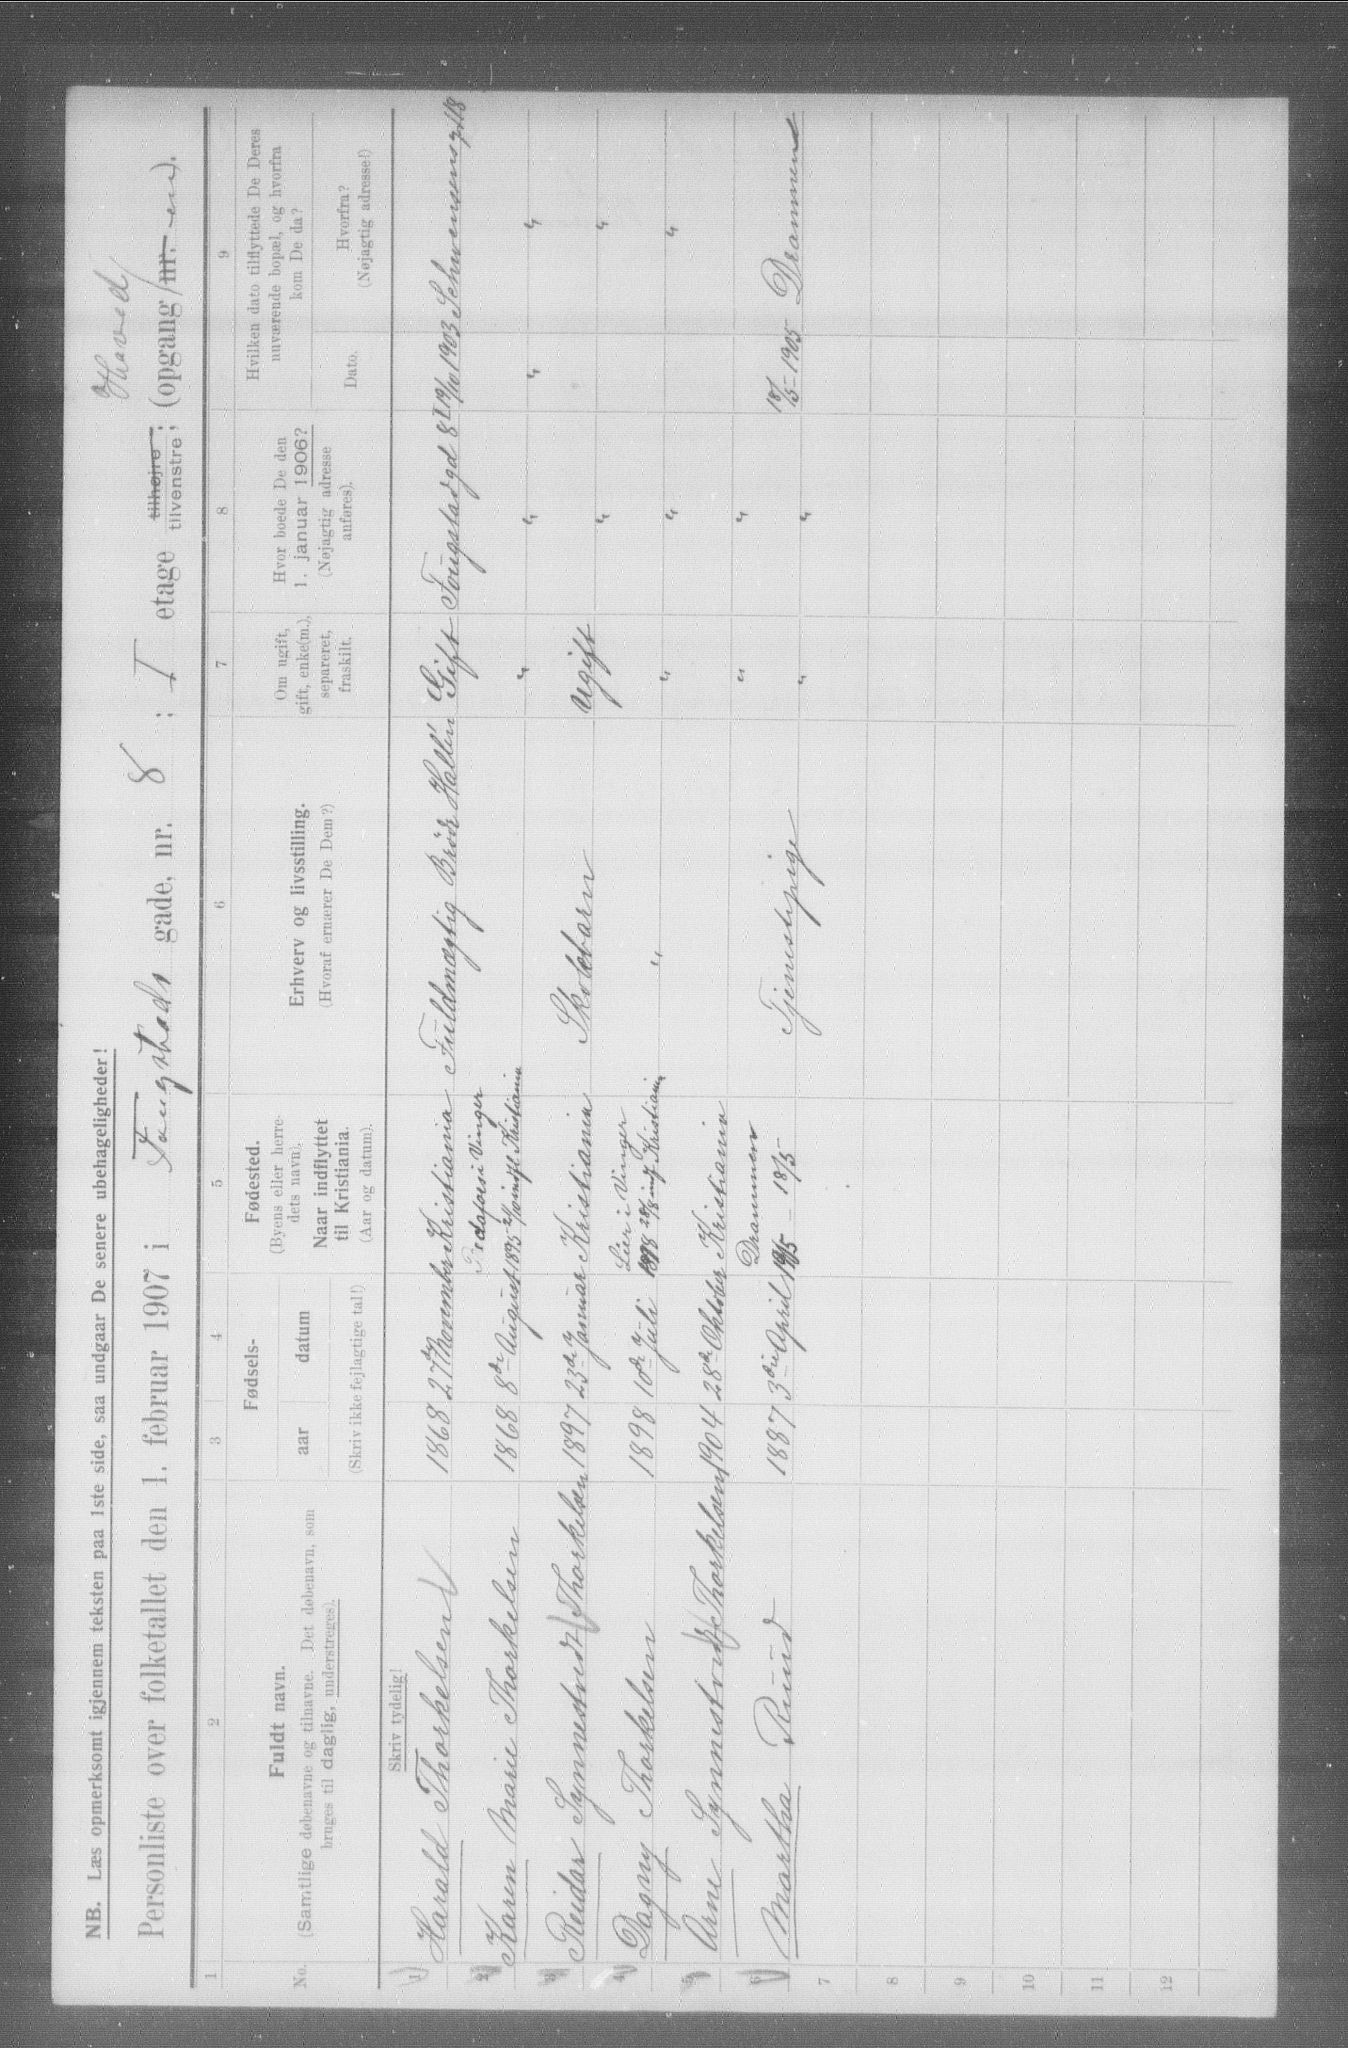 NB. Læs opmerksomt igjennem teksten paa 1ste side, saa undgaar De senere ubehageligheder!
Hoved
Personliste over folketallet den 1. februar 1907 i Fougstads gade, nr. 8 ; I etage tilhøjre; tilvenstre; (opgang nr. en).
1 2 3 4 5 6 7 8 9
No.
Fuldt navn.
(Samtlige døbenavne og tilnavne. Det døbenavn, som
bruges til daglig, understreges).
Fødsels-
aar datum
(Skriv ikke fejlagtige tal!)
Fødested.
(Byens eller herre-
dets navn).
Naar indflyttet
til Kristiania.
(Aar og datum).
Erhverv og livsstilling.
(Hvoraf ernærer De Dem?)
Om ugift,
gift, enke(m.),
separeret,
fraskilt.
Hvor boede De den
1. januar 1906?
(Nøjagtig adresse
anføres).
Hvilken dato tilflyttede De Deres
nuværende bopæl, og hvorfra
kom De da?
Dato.
Hvorfra?
(Nøjagtig adresse!)
Skriv tydelig!
1 Harald Thorkelsen 1868 27de November Kristiania Fuldmægtig Brødr Hallén Gift Fougstadgd 8 I 19/10 1903 Schwensensgt 18
2 Karen Marie Thorkelsen 1868 8de August i Vinger 1895 indfl Kristiania " " " "
3 Reidar Synnestvedt Thorkelsen 1897 23de Januar Kristiania Skolebarn Ugift " "
4 Dagny Thorkelsen 1898 10de Juli Lier i Vinger 1898 indf Kristiania " " " "
5 Arne Synnestvedt Thorkelsen 1904 28de Oktober Kristiania " "
6 Martha Ruud 1887 3die April Drammen 1905 - 18/5 Tjenestepige " " 18/5 - 1905 Drammen
7
8
9
10
11
12